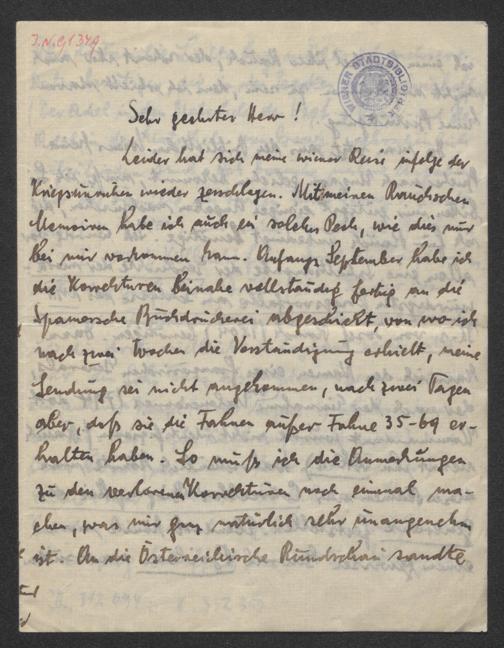 J.N. 91349
WIENER STADTBIBLIOTHEK
Sehr geehrter Herr!
Leider hat sich meine wiener Reise infolge der
Kriegsunruhen wieder zerschlagen. Mit meinen
Memoiren habe ich auch ein solches Pech, wie dies nur
bei mir vorkommen kann. Anfangs September habe ich
die Korrekturen beinahe vollständig fertig an die
Spamersche Buchdruckerei abgeschickt, von wo ich
nach zwei Wochen die Verständigung erhielt, meine
Sendung sei nicht angekommen, nach zwei Tagen
aber, daß sie die Fahnen außer Fahne 35-69 er-
halten haben. So muß ich die Anmerkungen
zu den verlorenen Korrekturen noch einmal ma-
chen, was mir ganz natürlich sehr unangenehm
ist. An die Österreichische Rundschau sandte